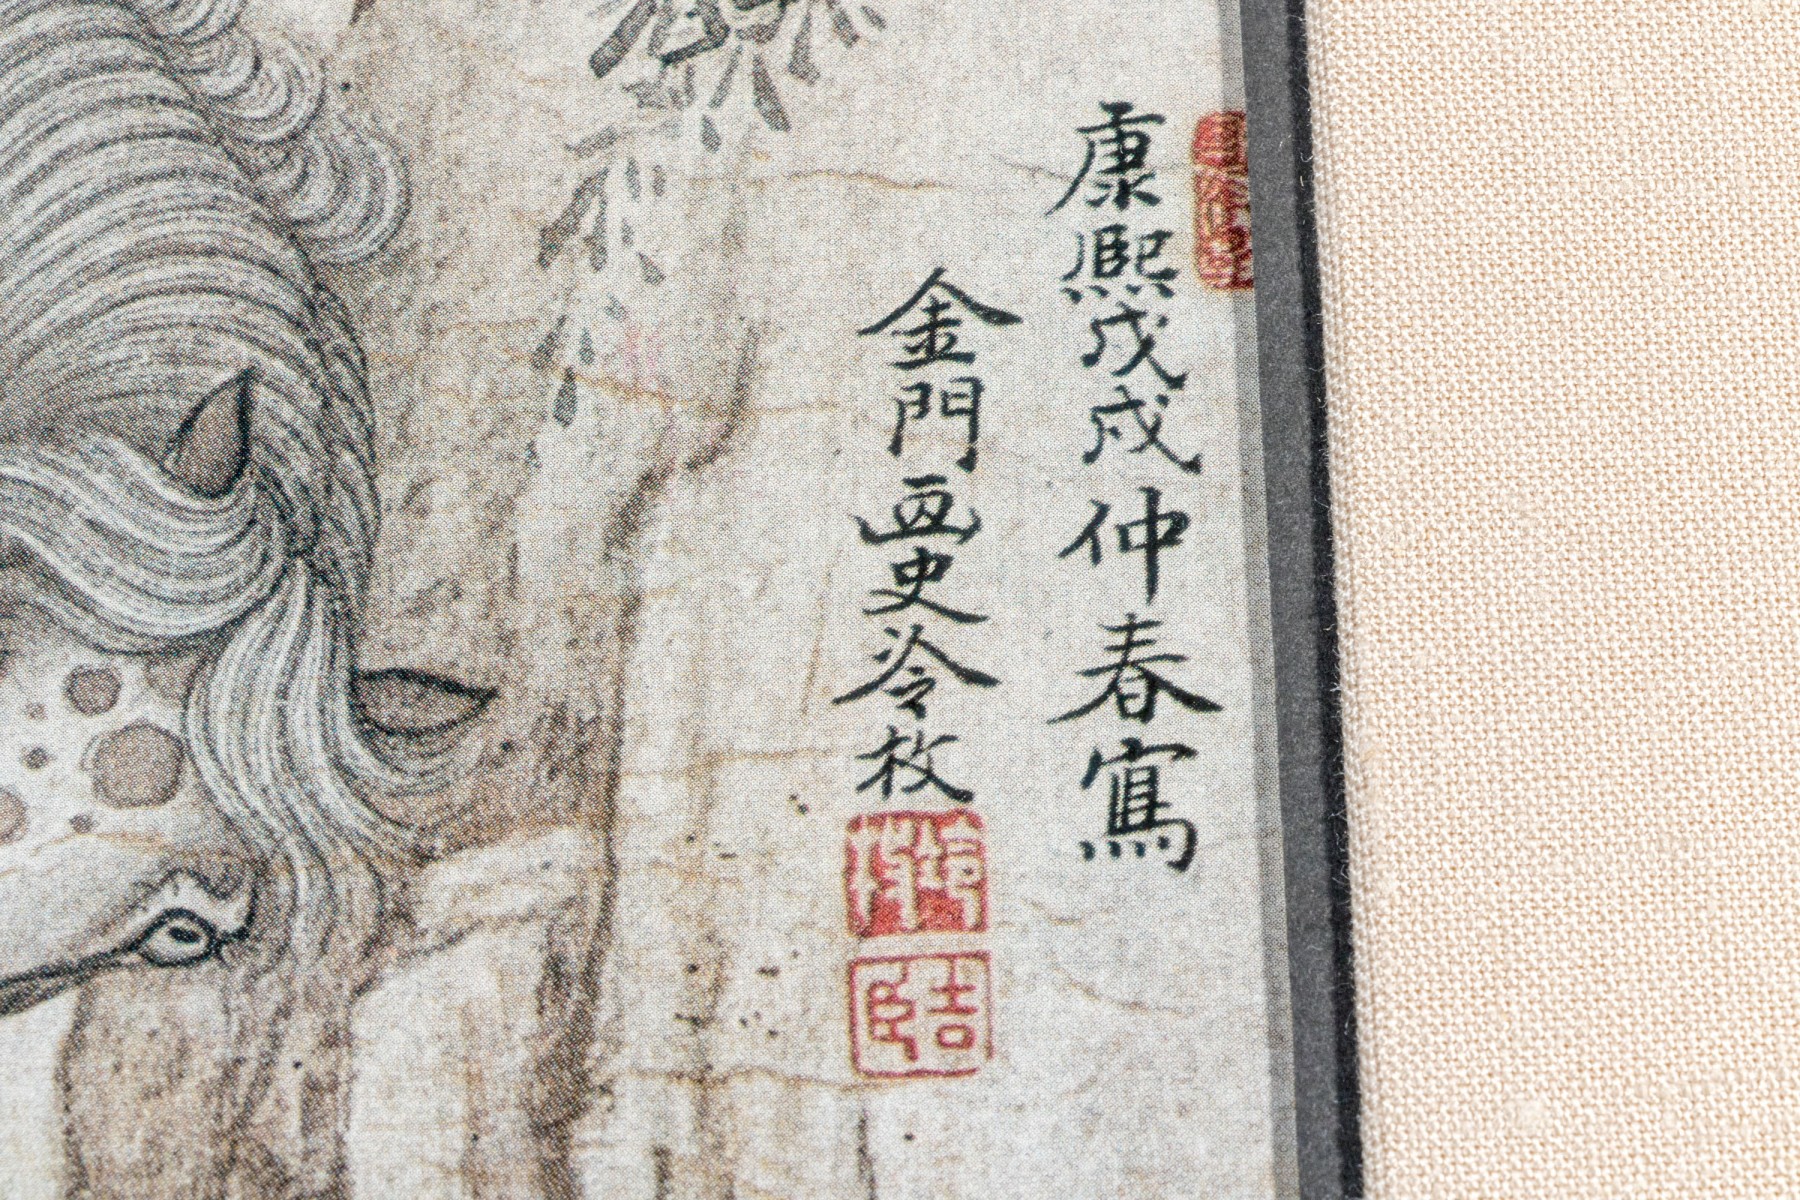 康熙戊戌仲春寫
金門画史冷枚
吉臣